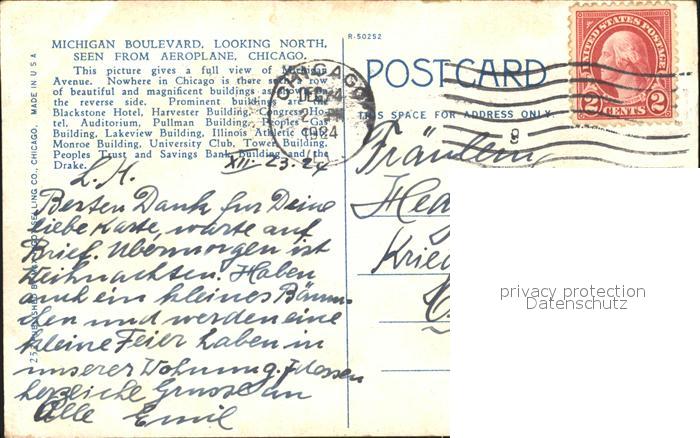 MICHIGAN BOULEVARD, LOOKING NORTH,
SEEN FROM AEROPLANE, CHICAGO.
This picture gives a full view of Michigan
Avenue. Nowhere in Chicago is there such a row
of beautiful and magnificent buildings as shown on
the reverse side. Prominent buildings are the
Blackstone Hotel, Harvester Building, Congress Ho-
tel, Auditorium, Pullman Building, Peoples Gas
Building, Lakeview Building, Illinois Athletic Club,
Monroe Building, University Club, Tower Building,
Peoples Trust and Savings Bank building and the
Drake.
XII. 23. 24
L. H.
Besten Dank für Deine
liebe Karte, warte auf
Brief. Übermorgen ist
Weihnachten. Haben
auch ein kleines Bäum-
chen und werden eine
kleine Feier haben in
unserer Wohnung.
herzliche Grüsse an
Alle Emil
MADE IN U S A
CO., CHICAGO.
R-50252
POST CARD
THIS SPACE FOR ADDRESS ONLY.
CHICAGO
DEC 24
1924
9
UNITED STATES POSTAGE
2 CENTS 2
Fräulein
privacy protection
Datenschutz